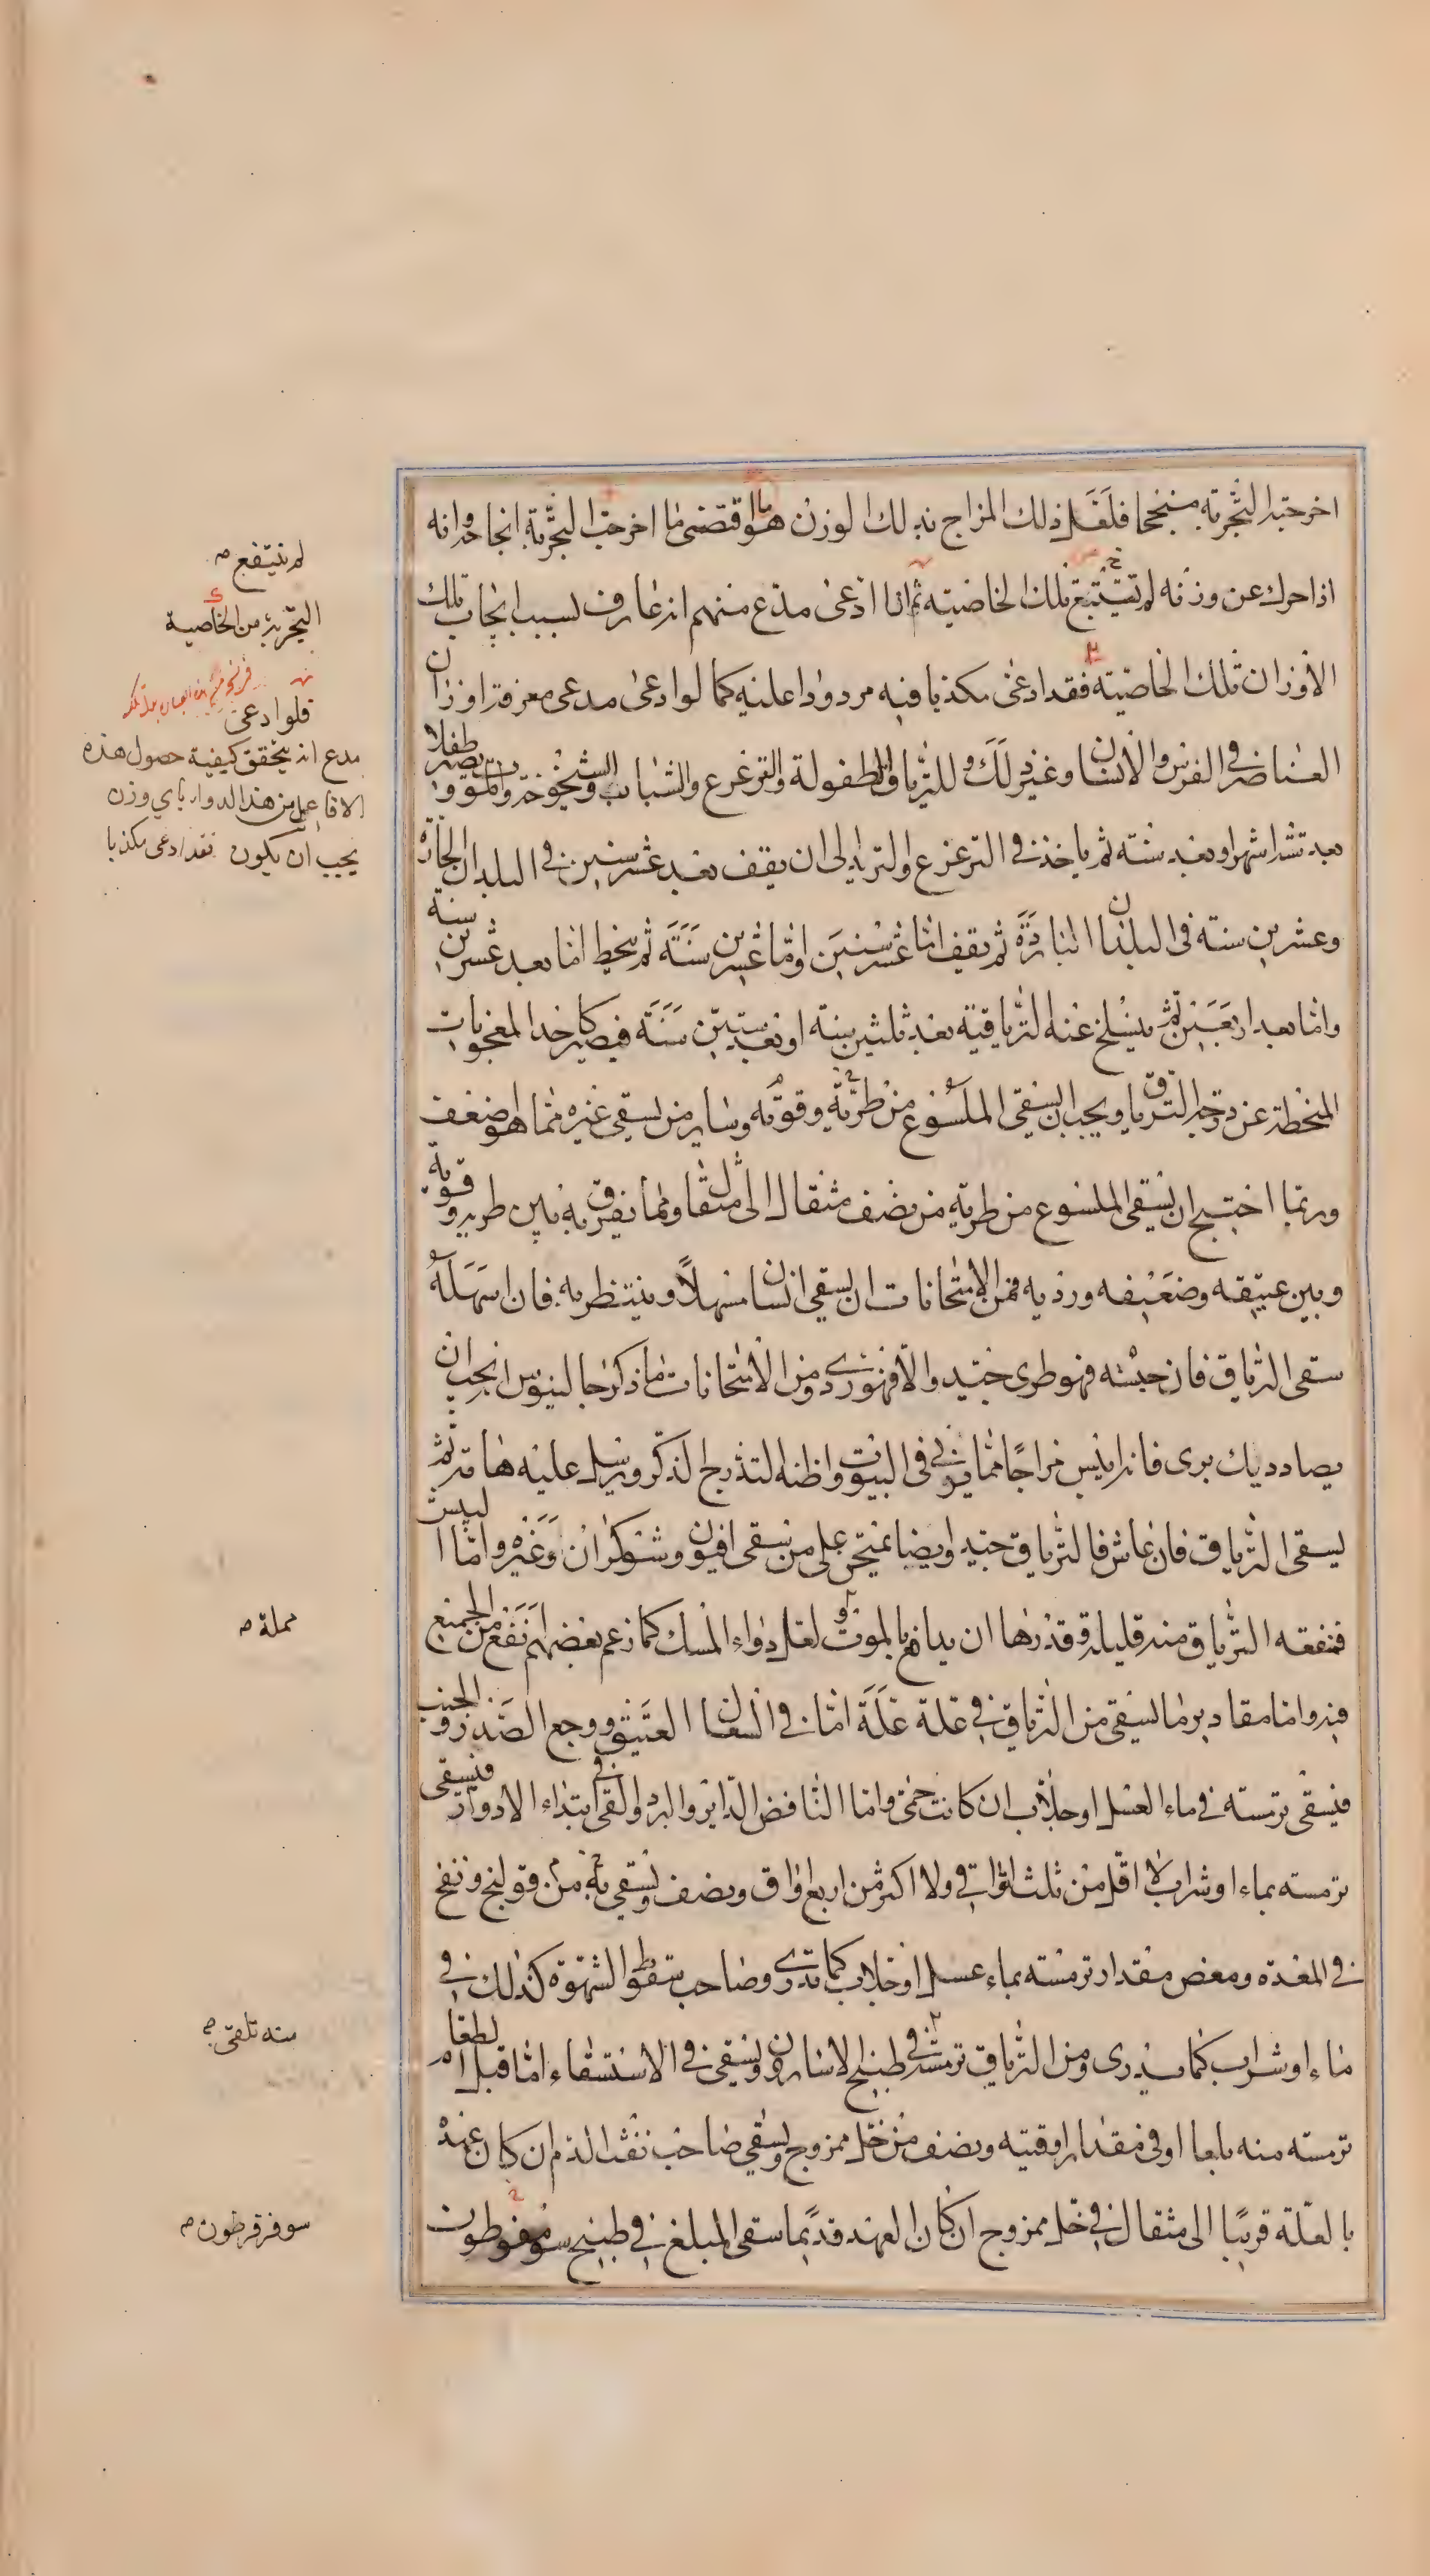 اخرجته التجربة منجحا فلعل ذلك المزاج بذلك الوزن هو ما اقتضى ما اخرجت التجربة انجاحه وانه
اذا حرك عن وزنه لم تستتبع تلك الخاصية ثم اذا ادعى مدع منهم انه عارف لسبب ايجاب تلك
الاوزان تلك الخاصية فقد ادعى مكذبا فيه مردودا عليه كما لو ادعى مدعى معرفة اوزان
العناصر في الفرس والانسان وغير ذلك وللترياق طفولة والترعرع والشباب والشيخوخة والموت ويصير طفلا
بعد ستة اشهر او بعد سنة ثم ياخذ في الترعرع والتزيد الى ان يقف بعد عشر سنين في البلدان الحارة
وعشرين سنة في البلدان الباردة ثم يقف اما عشر سنين واما عشرين سنة ثم ينحط اما بعد عشرين سنة
واما بعد اربعين ثم ينسلخ عنه الترياقية بعد ثلثين سنة او بعد ستين سنة فيصير كاحد المعجونات
المنحطة عن درجة الترياق ويجب ان يسقى الملسوع من طريه وقويه وساير من يسقى غيره مما هو اضعف
وربما احتيج ان يسقى الملسوع من طريه من نصف مثقال الى مثقال ومما يفرق به بين طريه وقويه
وبين عتيقه وضعيفه ورديه فمن الامتحانات ان يسقى انسان مسهلا وينتظر به فان اسهله
سقى الترياق فان حبسه فهو طرى جيد والا فهو ردى ومن الامتحانات ما ذكر جالينوس انه يجب ان
يصاد ديك برى فانه ايبس مزاجا مما يربى في البيوت واظنه التذرج الذكر ويرسل عليه هامة ثم
يسقى الترياق فان عاش فالترياق جيد وايضا يمتحن على من سقى افيون وشوكران وغيره واما البيش
فمنفعة الترياق منه قليلة وقدرها ان يدافع بالموت ولعل دواء المسك كما زعم بعضهم انفع من الجميع
فيه واما مقادير ما يسقى من الترياق في علة علة اما في السعال العتيق ووجع الصدر والجنب
فيسقى ترمسة في ماء العسل او جلاب ان كانت حمى واما النافض الداير والبرد والقئ في ابتداء الادوار فيسقى
ترمسة بماء او شراب لا اقل من ثلث اواقي ولا اكثر من اربع اواق ونصف ويسقى من به قولنج ونفخ
في المعدة ومغص مقدار ترمسة بماء عسل او جلاب كما تدرى وصاحب سقوط الشهوة كذلك في
ماء او شراب كما تدرى ومن الترياق ترمسة في طبيخ الاسارون ويسقى في الاستسقاء اما قبل الطعام
ترمسة منه بلعا او في مقدار اوقية ونصف من خل ممزوج ويسقى صاحب نفث الدم ان كان عهده
بالعلة قريبا الى مثقال في خل ممزوج ان كان العهد قديما سقى المبلغ في طبيخ سومفوطون
لم ينتفع م
التجربة من الخاصية
فلو ادعى
مدع انه يحقق كيفية حصول هذه
الافاعيل من هذا الدواء باي وزن
يجب ان يكون فقد ادعى مكذبا
مملة م
منه تلقى م
سوفر قرطون م